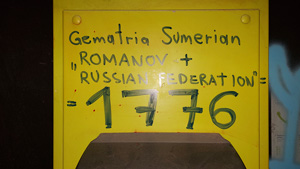 Gematria Sumerian
„ROMANOV +
RUSSIAN FEDERATION"=
=1776